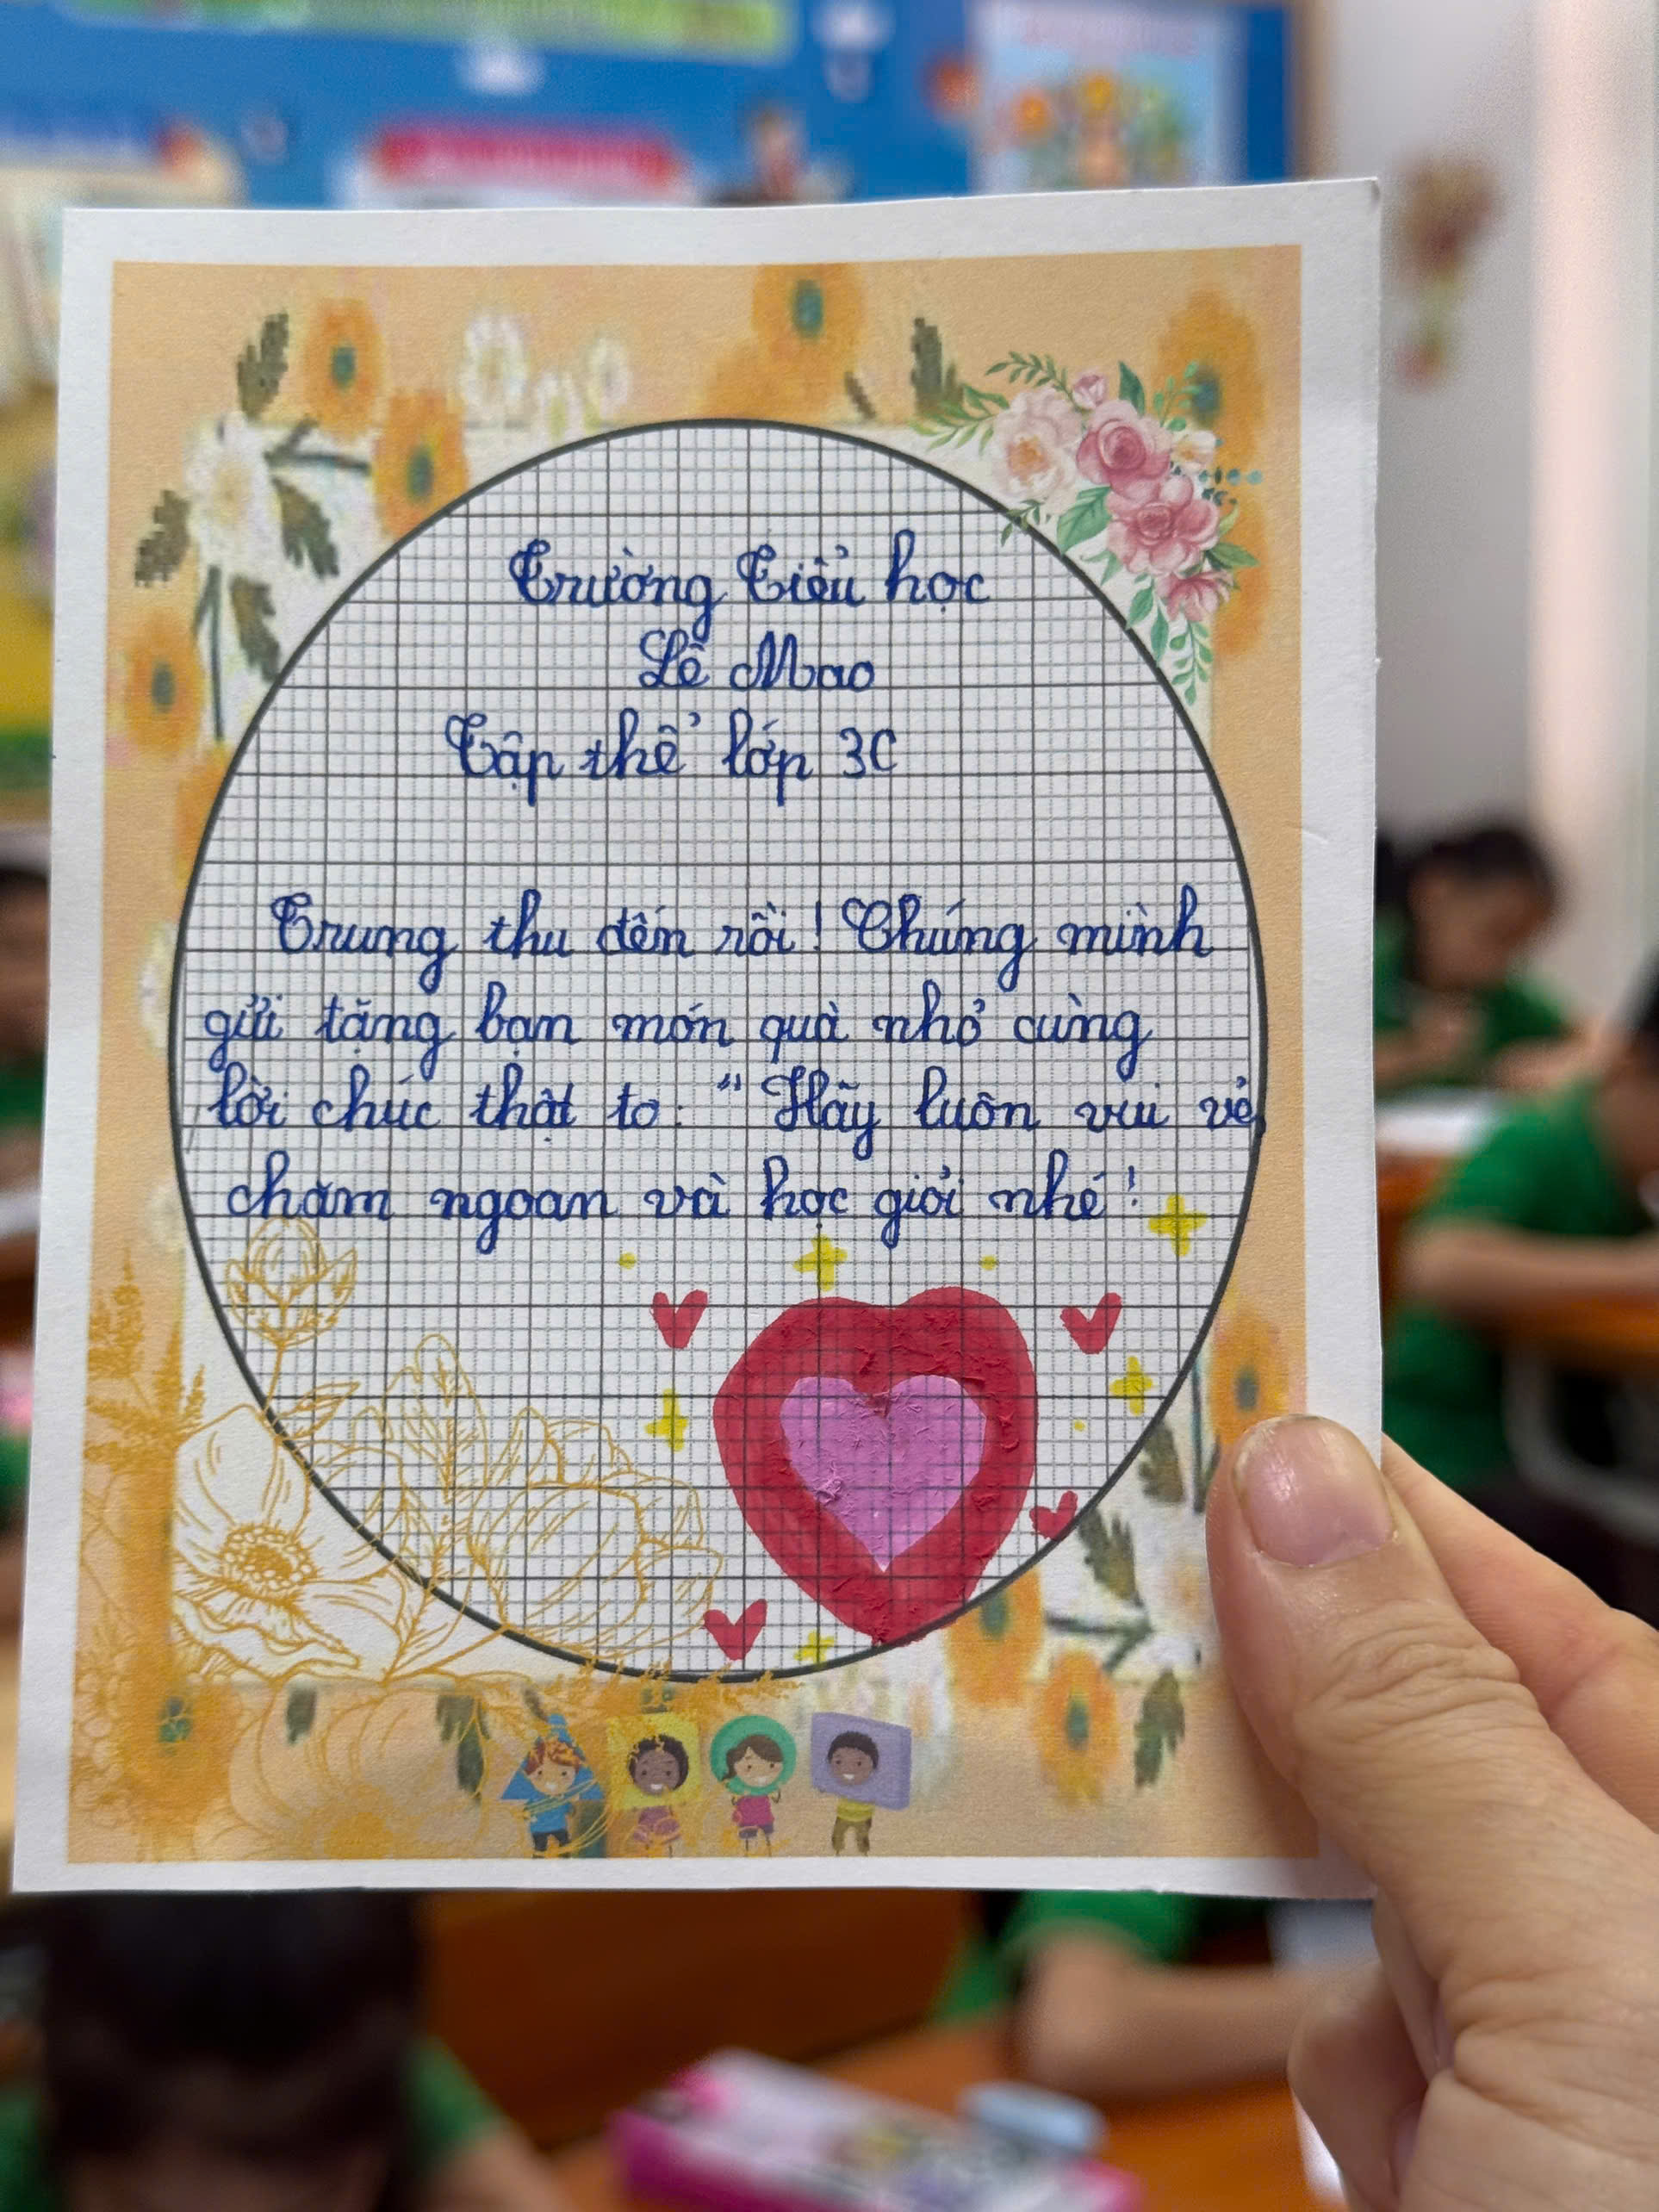 Trường Tiểu học
Lê Mao
Tập thể lớp 3C
Trung thu đến rồi! Chúng mình
gửi tặng bạn món quà nhỏ cùng
lời chúc thật to: "Hãy luôn vui vẻ,
chăm ngoan và học giỏi nhé!